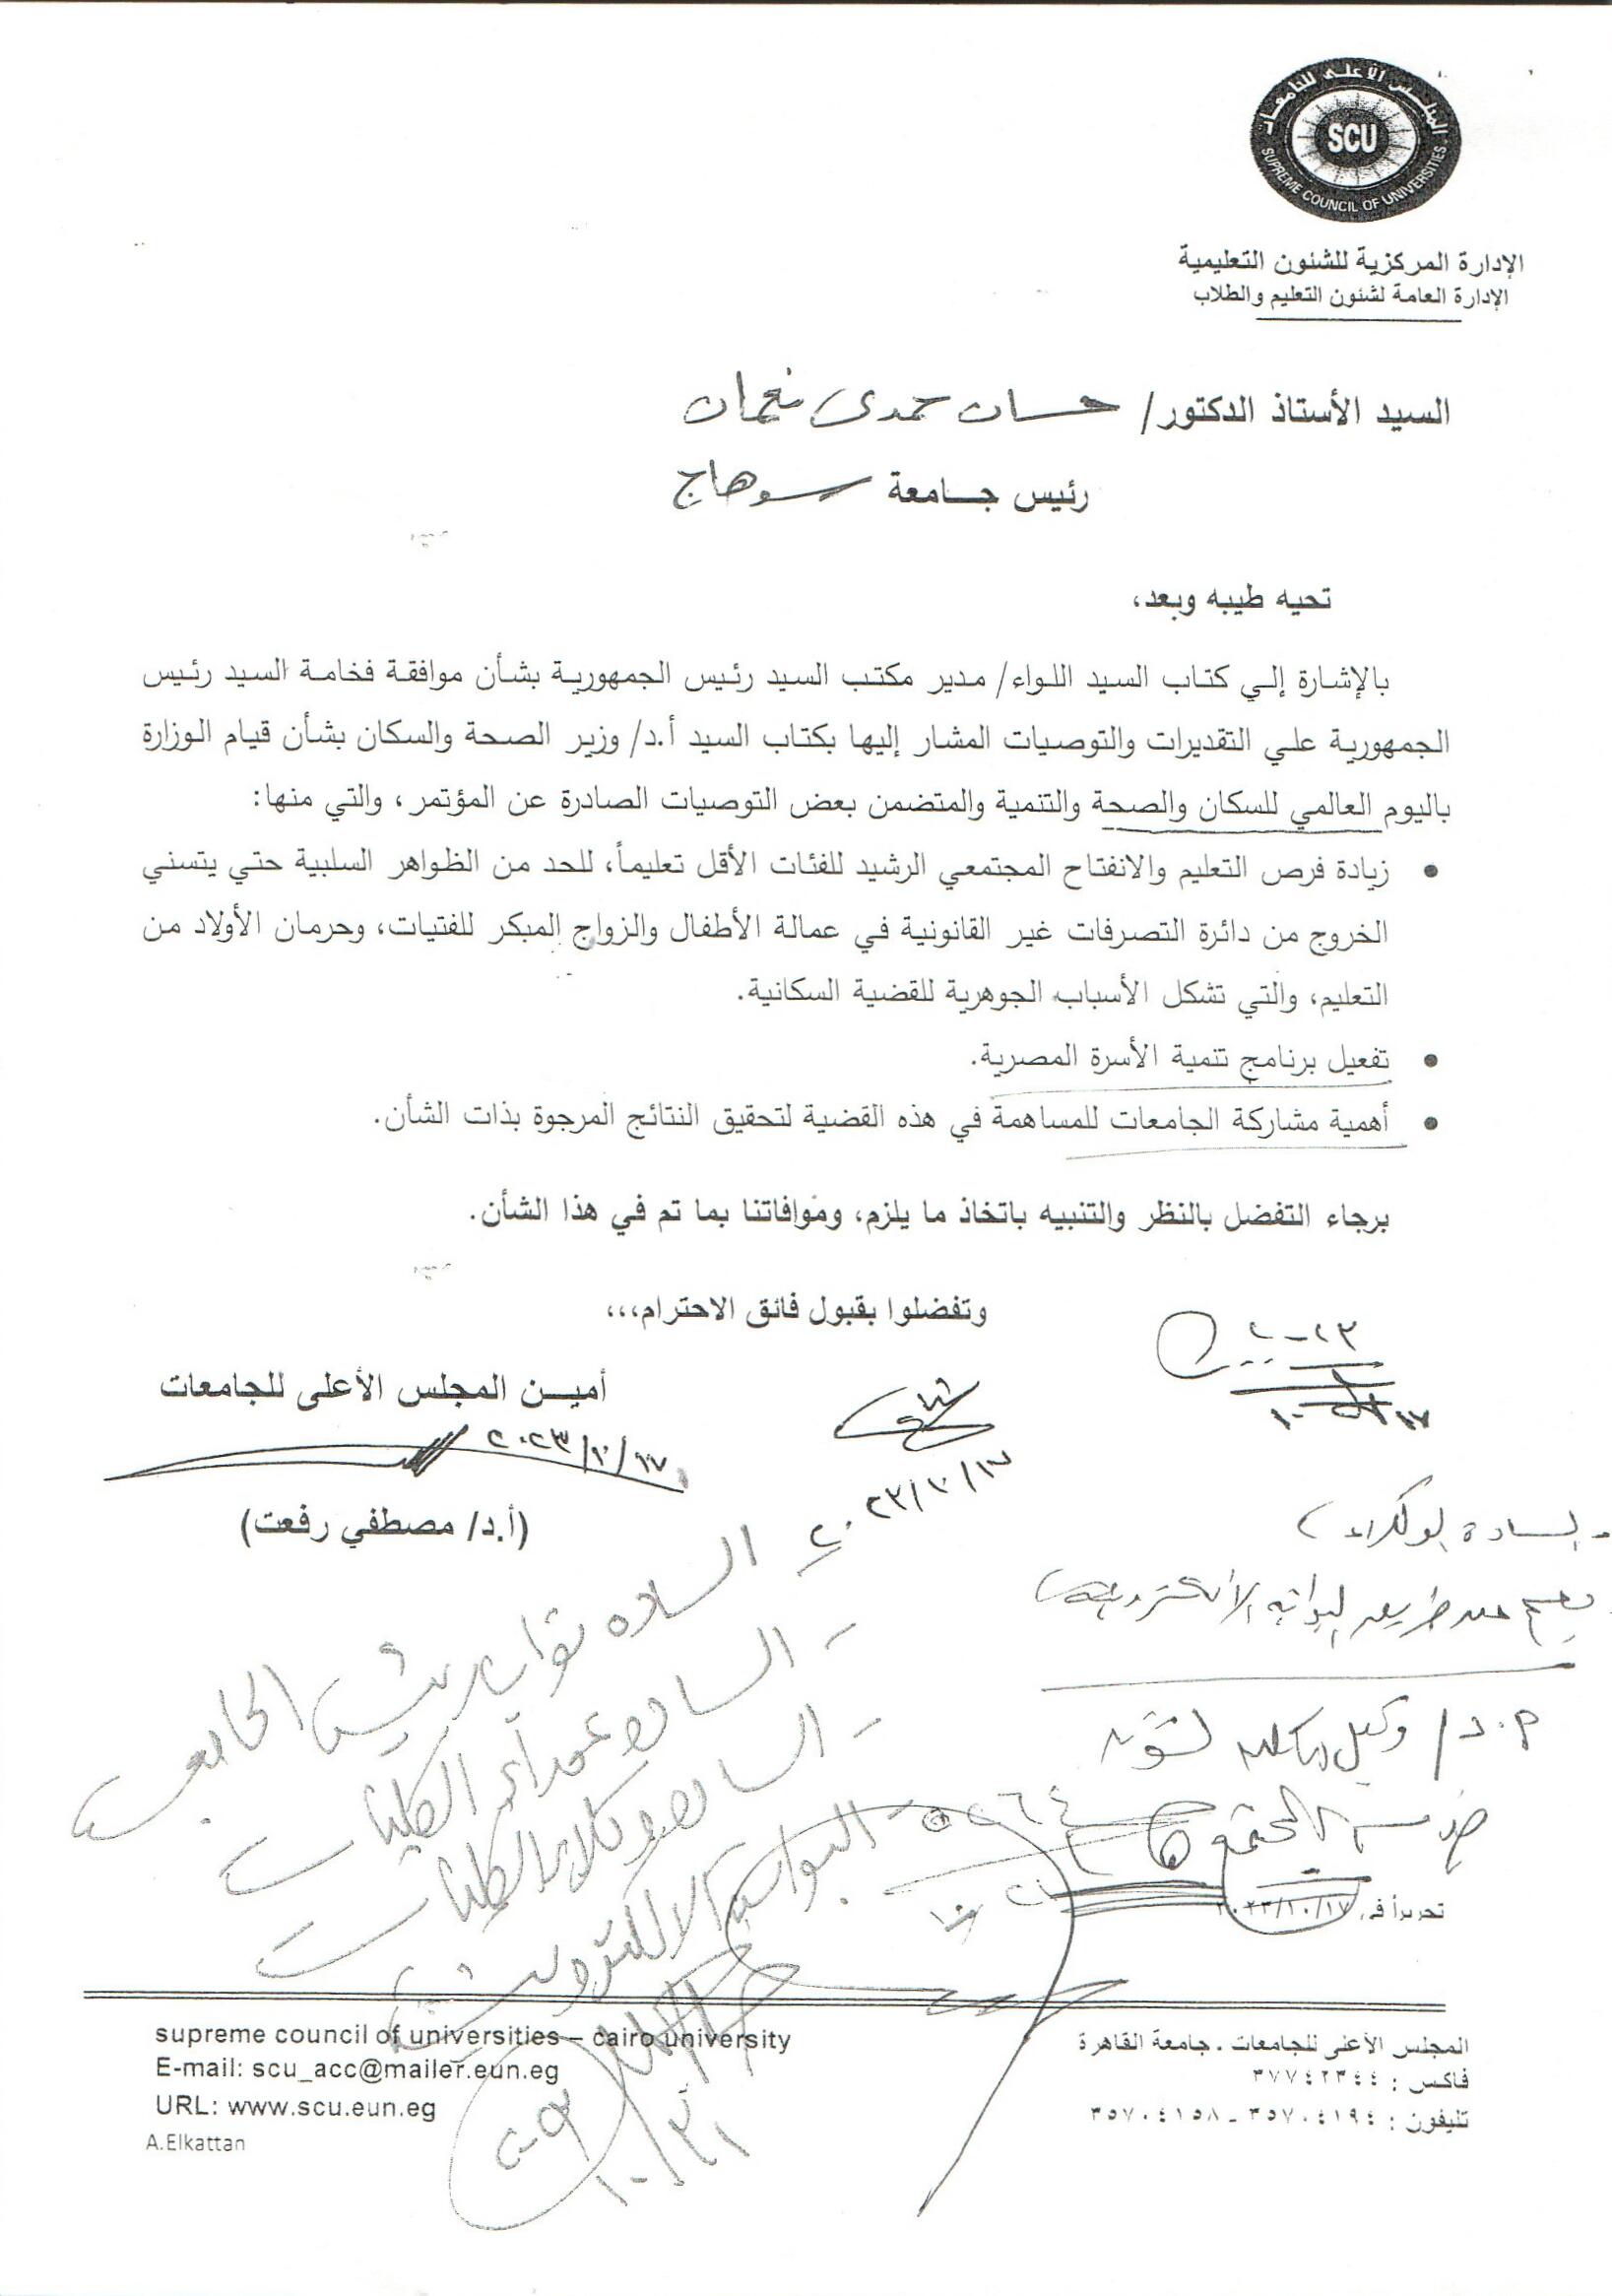 المجلس الأعلى للجامعات
SCU
SUPREME COUNCIL OF UNIVERSITIES
الإدارة المركزية للشئون التعليمية
الإدارة العامة لشئون التعليم والطلاب
السيد الأستاذ الدكتور/ حسان حمدى نعمان
رئيس جامعة سوهاج
تحيه طيبه وبعد،
بالإشارة إلي كتاب السيد اللواء/ مدير مكتب السيد رئيس الجمهورية بشأن موافقة فخامة السيد رئيس
الجمهورية علي التقديرات والتوصيات المشار إليها بكتاب السيد أ.د/ وزير الصحة والسكان بشأن قيام الوزارة
باليوم العالمي للسكان والصحة والتنمية والمتضمن بعض التوصيات الصادرة عن المؤتمر، والتي منها:
• زيادة فرص التعليم والانفتاح المجتمعي الرشيد للفئات الأقل تعليماً، للحد من الظواهر السلبية حتي يتسني
الخروج من دائرة التصرفات غير القانونية في عمالة الأطفال والزواج المبكر للفتيات، وحرمان الأولاد من
التعليم، والتي تشكل الأسباب الجوهرية للقضية السكانية.
• تفعيل برنامج تنمية الأسرة المصرية.
• أهمية مشاركة الجامعات للمساهمة في هذه القضية لتحقيق النتائج المرجوة بذات الشأن.
برجاء التفضل بالنظر والتنبيه باتخاذ ما يلزم، وموافاتنا بما تم في هذا الشأن.
وتفضلوا بقبول فائق الاحترام،،،
أمين المجلس الأعلى للجامعات
٢٠٢٣/١٠/١٧
٢٠٢٣/١٠/١٧
(أ.د/ مصطفي رفعت)
السادة الوكلاء
السادة نواب رئيس الجامعة
- السادة عمداء الكليات
- السادة وكلاء الكليات
- البوابة الالكترونية
تحريراً في ٢٠٢٣/١٠/١٧
supreme council of universities – cairo university
E-mail: scu_acc@mailer.eun.eg
URL: www.scu.eun.eg
A.Elkattan
المجلس الأعلى للجامعات . جامعة القاهرة
فاكس : ٣٧٧٤٢٣٤٤
تليفون : ٣٥٧٠٤١٩٤ - ٣٥٧٠٤١٥٨